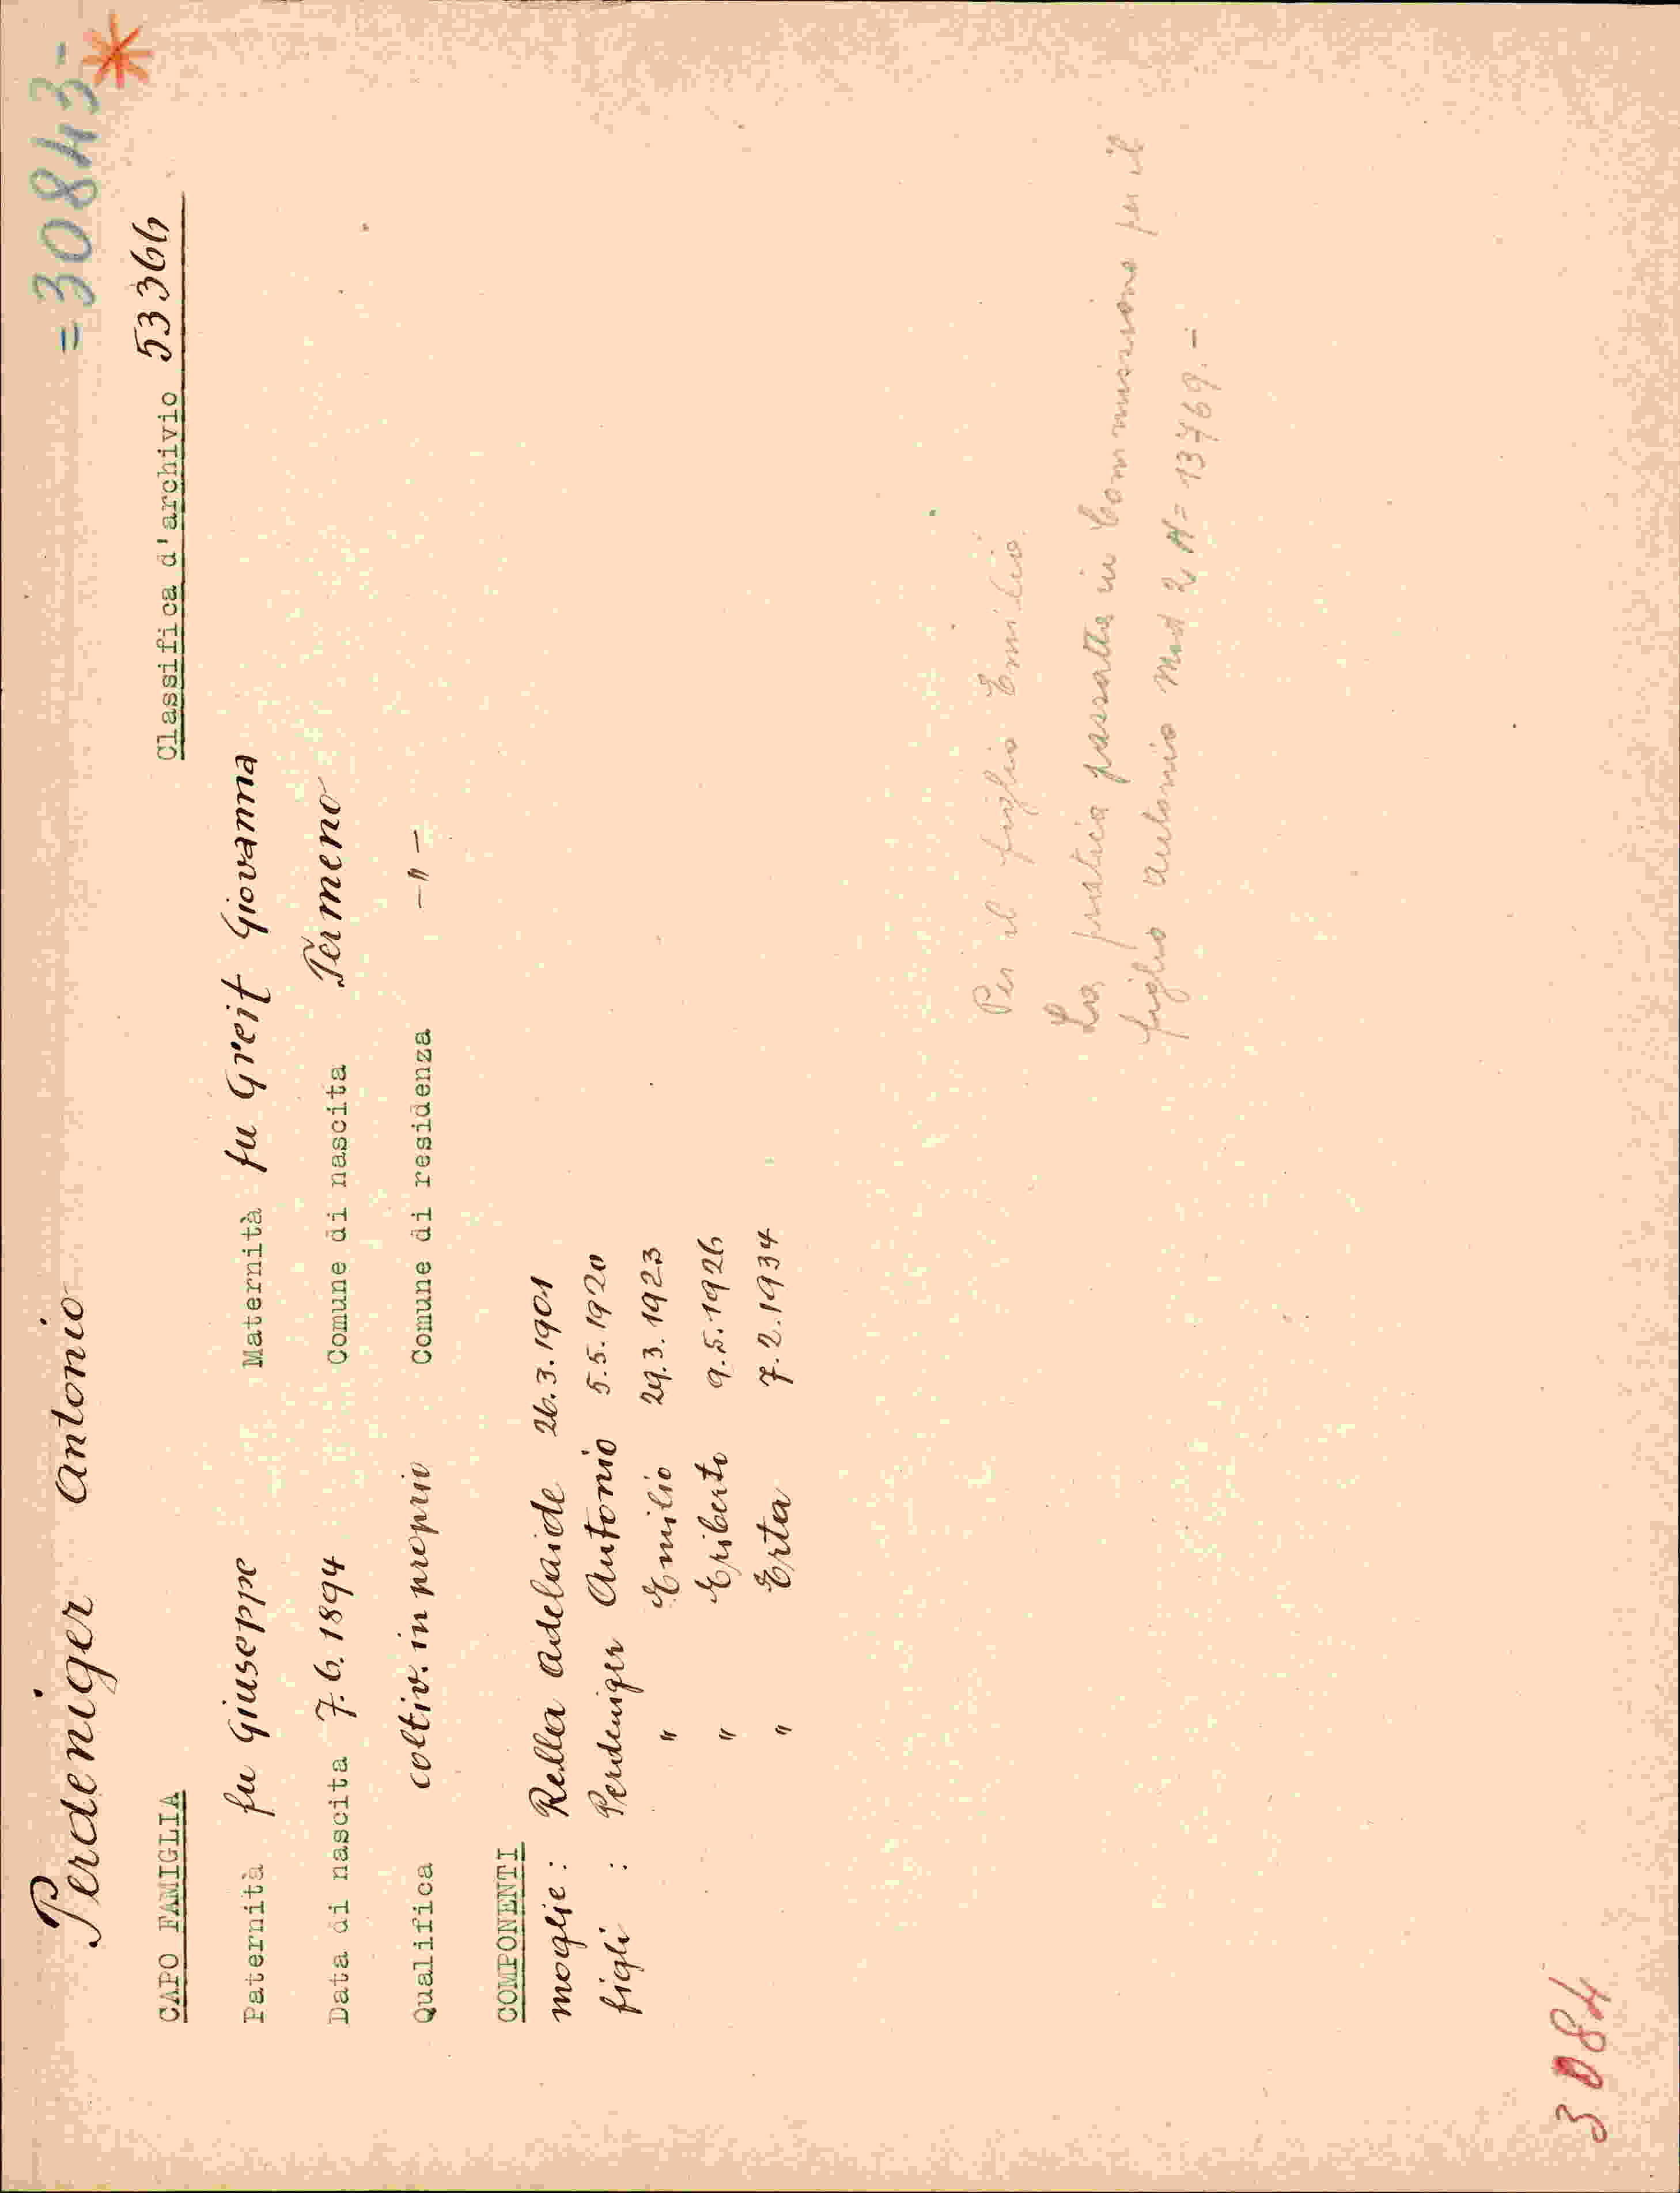 Perdeniger Antonio = 30843-
CAPO FAMIGLIA Classifica d'archivio 53366
Paternità fu Giuseppe Maternità fu Greif Giovanna
Data di nascita 7.6.1894 Comune di nascita Termeno
Qualifica coltiv. in proprio Comune di residenza -"-
COMPONENTI
moglie: Rella Adelaide 26.3.1901
figli : Perdeniger Antonio 5.5.1920
" Emilio 29.3.1923
" Eriberto 9.5.1926
" Erta 7.2.1934
Per il figlio Emilio
La pratica passata in Commissione per il
figlio Antonio Mod 2 N= 13769.-
3084